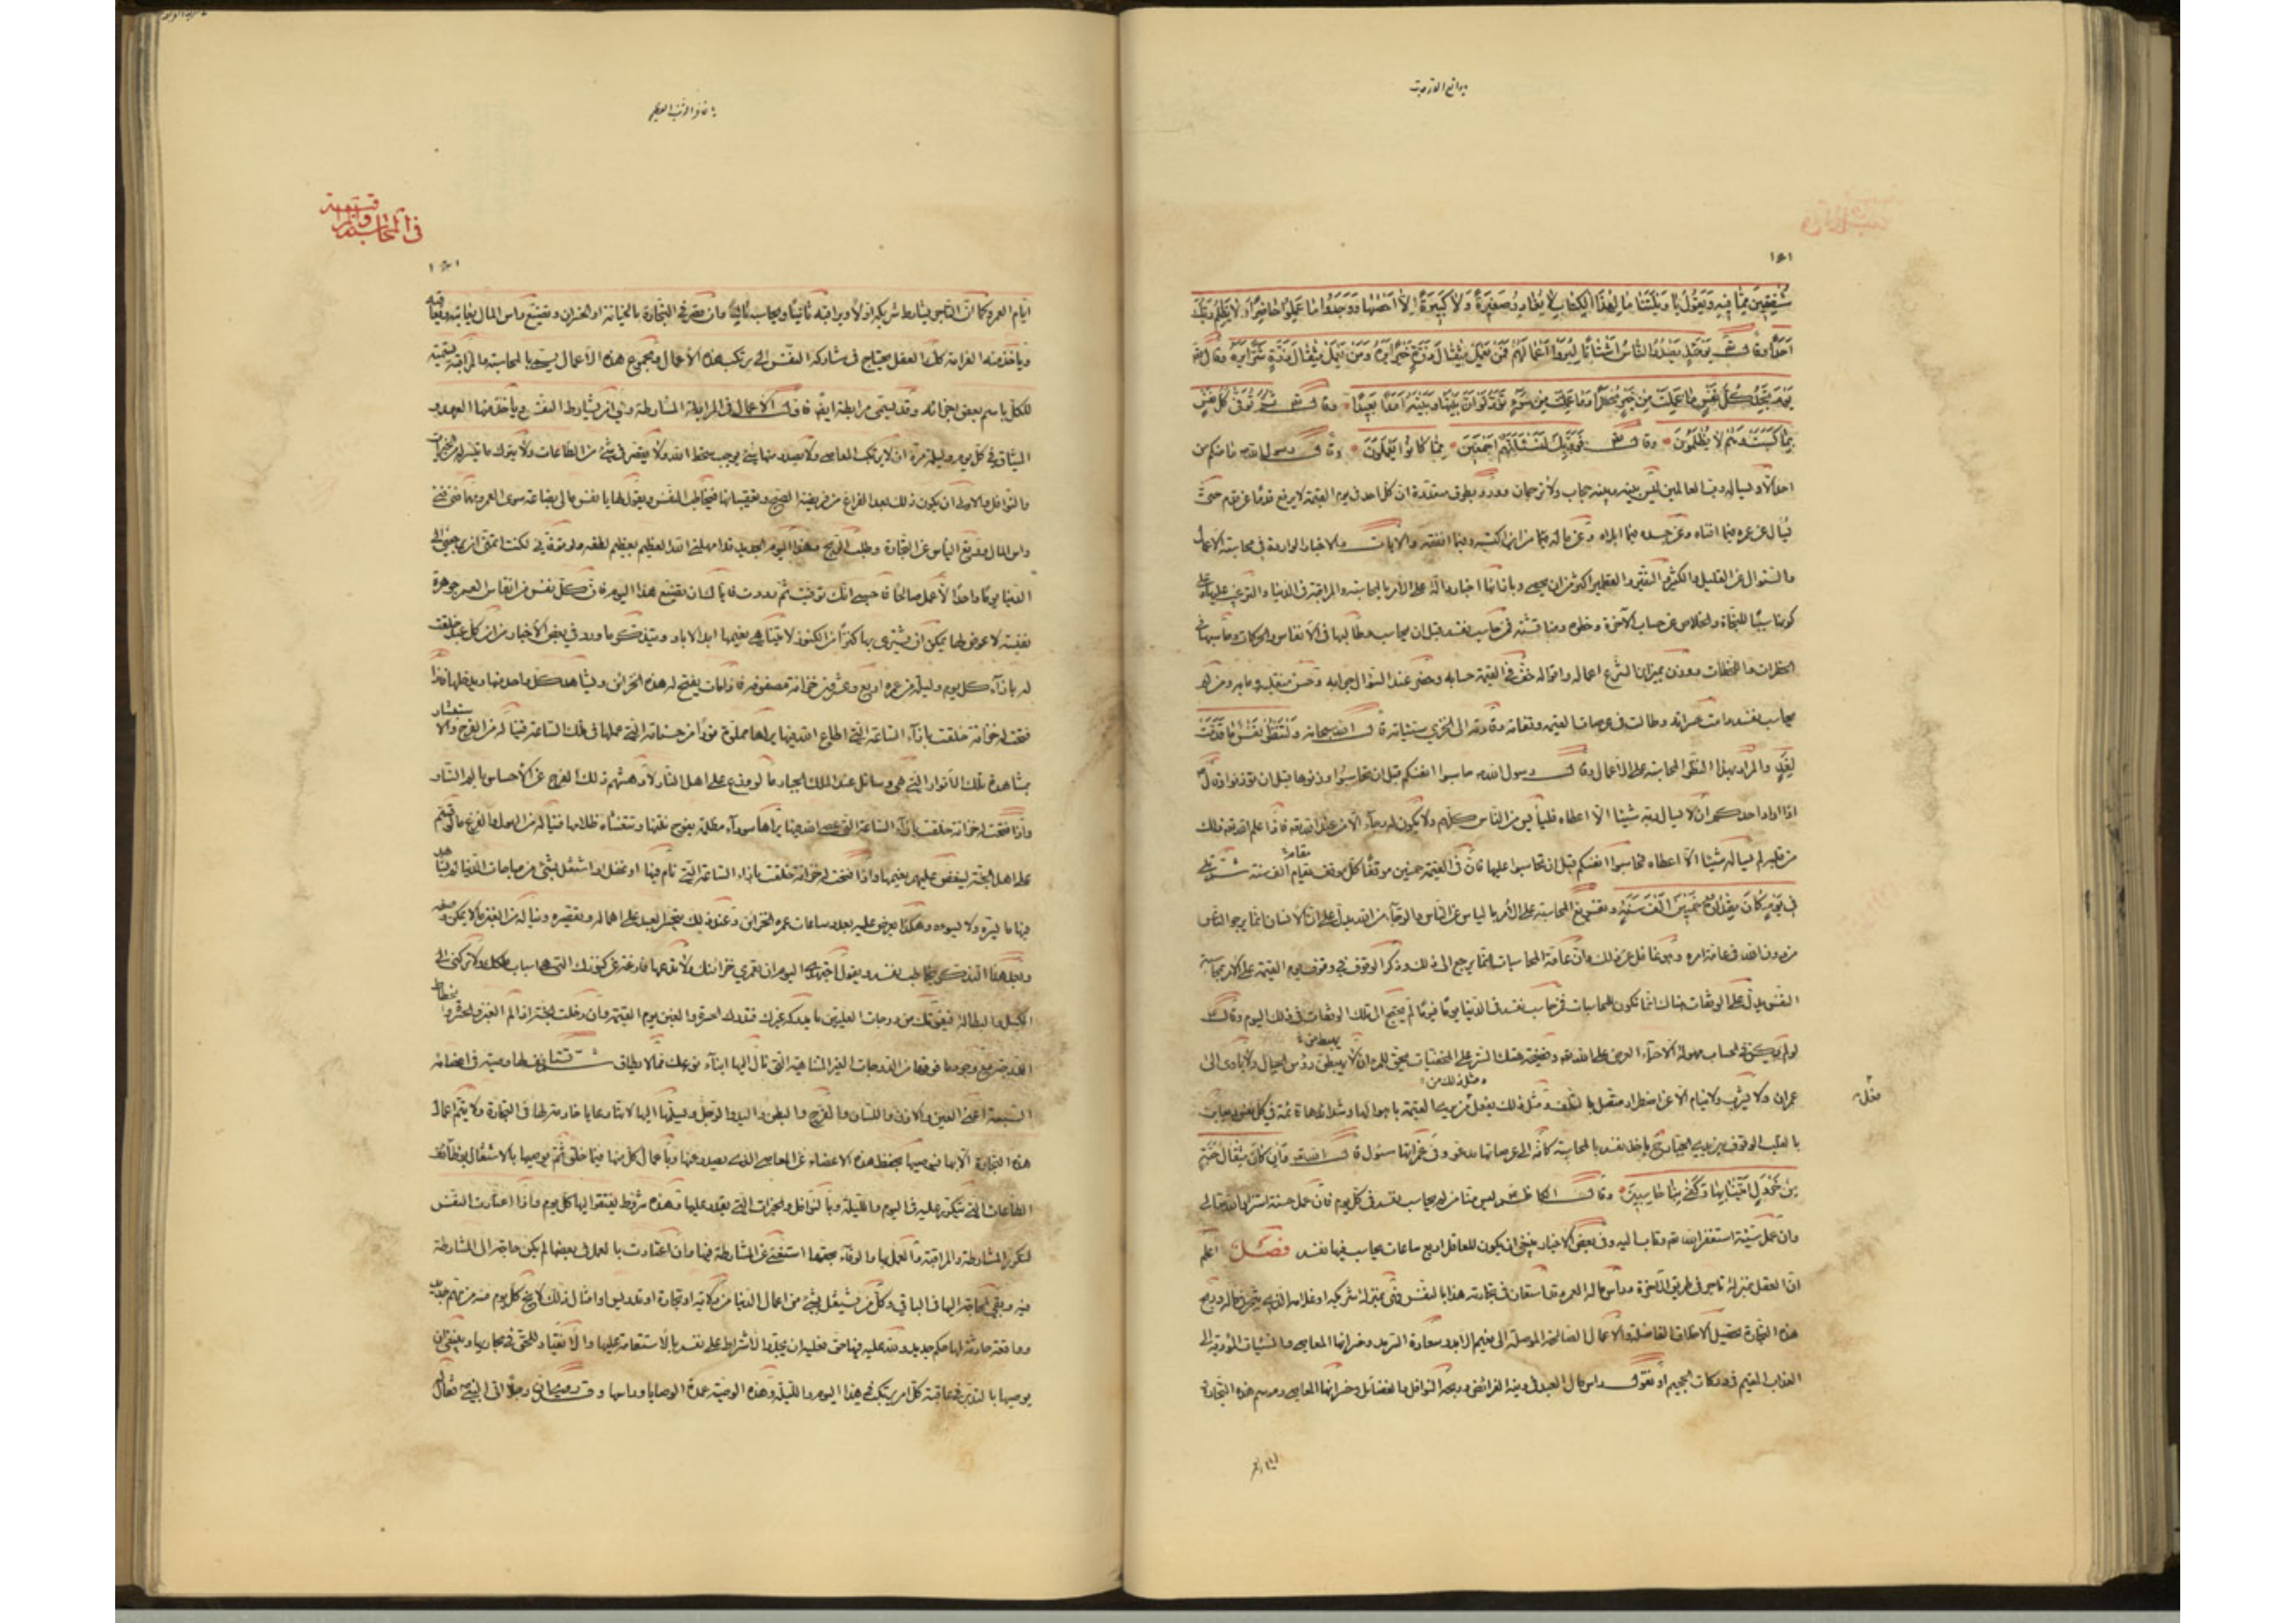 مشفقين مما فيه ويقولون يا ويلتنا ما لهذا الكتاب لا يغادر صغيرة ولا كبيرة الا احصيها ووجدوا ما عملوا حاضرا ولا يظلم ربك
احدا وقال يومئذ يصدر الناس اشتاتا ليروا اعمالهم فمن يعمل مثقال ذرة خيرا يره ومن يعمل مثقال ذرة شرا يره وقال
يوم تجد كل نفس ما عملت من خير محضرا وما عملت من سوء تود لو ان بينها وبينه امدا بعيدا وقال ثم توفى كل نفس
بما كسبت وهم لا يظلمون وقال فوربك لنسئلنهم اجمعين عما كانوا يعملون وقال رسول الله ما منكم من
احد الا ويسأله رب العالمين ليس بينه وبينه حجاب ولا ترجمان وورد بطرق متعددة ان كل احد في يوم القيمة لا يرفع قدما عن قدم حتى
يسأل عن عمره فيما افناه وعن جسده فيما ابلاه وعن ماله مما من اين اكتسبه وفيما انفقه والايات والاخبار الواردة في محاسبة الاعمال
والسؤال عن القليل والكثير والنقير والقطمير اكثر من ان يحصى وبازائها اخبار دالة على الامر بالمحاسبة والمراقبة في الدنيا والترغيب عليها
كونها سببا للنجاة والخلاص عن حساب الآخرة وخطره ومناقشته فمن حاسب نفسه قبل ان يحاسب وطالبها في الانفاس والحركات وحاسبها في
الخطرات واللحظات ووزن بميزان الشرع اعماله واقواله خف في القيمة حسابه وحضر عند السؤال جوابه وحسن منقلبه ومابه ومن لم
يحاسب نفسه دامت حسراته وطالت في عرصات القيمة وقفاته وقادته الى الخزي سيئاته قال الله سبحانه ولتنظر نفس ما قدمت
لغد والمراد بهذا النظر المحاسبة على الاعمال وقال رسول الله حاسبوا انفسكم قبل ان تحاسبوا وزنوها قبل ان توزنوا وقال
اذا اراد احدكم ان لا يسأل ربه شيئا الا اعطاه فليأيس من الناس كلهم ولا يكون له رجاء الا من عند الله فاذا علم الله ذلك
من قلبه لم يسأله شيئا الا اعطاه فحاسبوا انفسكم قبل ان تحاسبوا عليها فان في القيمة خمسين موقفا كل موقف مقام الف سنة ثم تلى
في يوم كان مقداره خمسين الف سنة وتفريع المحاسبة على الامر بالياس عن الناس والرجاء من الله يدل على ان الانسان انما يرجو الناس
من دون الله في عامة امره وهو غافل عن ذلك وان عامة المحاسبات انما يرجع الى ذلك وذكر الوقوف في مواقف يوم القيمة على الامر بمحاسبة
النفس يدل على ان الوقفات هناك انما تكون للمحاسبات فمن حاسب نفسه في الدنيا يوما فيوما لم يحتج الى تلك الوقفات في ذلك اليوم وقال
لو لم يكن للحساب مهولة الا حياء العرض على الله وفضيحة هتك الستر على المخفيات يحق للمرء ان لا يهبط من رؤس الجبال ولا ياوى الى
عمران ولا يشرب ولا ينام الا عن اضطرار متصل بالتلف ومثل ذلك يفعل من يرى القيمة باهوالها وشدائدها قائمة في كل نفس ويعاين
بالقلب الوقوف بين يدي الجبار ح ياخذ نفسه بالمحاسبة كانه الى عرصاتها مدعو وفي غمراتها مسئول قال الله وان كان مثقال حبة
من خردل اتينا بها وكفى بنا حاسبين وقال الكاظم ليس منا من لم يحاسب نفسه في كل يوم فان عمل حسنة استزاد الله تعالى
وان عمل سيئة استغفر الله منه وتاب اليه وفي بعض الاخبار ينبغي ان يكون للعاقل اربع ساعات يحاسب فيها نفسه فصل اعلم
ان العقل بمنزلة تاجر في طريق الآخرة وراس ماله العمر وقد استعان في تجارته هذا بالنفس فهي بمنزلة شريكه او غلامه الذي يتجر في ماله وربح
هذه التجارة تحصيل الاخلاق الفاضلة والاعمال الصالحة الموصلة الى نعيم الابد وسعادة السرمد وخسرانها المعاصي والسيئات المؤدية الى
العذاب المقيم في دركات الجحيم او نقول راس مال العبد في دينه الفرائض وربحه النوافل والفضائل وخسرانها المعاصي وموسم هذه التجارة
ايام العمر
في المحاسبة والمراقبة
ايام العمر وكما ان التاجر يشارط شريكه اولا ويراقبه ثانيا ويحاسبه ثالثا وان قصر في التجارة بالخيانة او الخسران وتضييع راس المال يعاتبه ويعاقبه
وياخذ منه الغرامة كذلك العقل يحتاج في مشاركة النفس الى ان يرتكب هذه الاعمال ومجموع هذه الاعمال يسمى بالمحاسبة والمراقبة تسمية
للكل باسم بعض اجزائه وقد يسمى مرابطة ايضا فاول الاعمال في المرابطة المشارطة وهي ان يشارط النفس وياخذ منها العهد و
الميثاق في كل يوم وليلة مرة ان لا يرتكب المعاصي ولا يصدر منها شئ يوجب سخط الله ولا يقصر في شئ من الطاعات ولا يترك ما تيسر له من الخيرات
والنوافل والاولى ان يكون ذلك بعد الفراغ من فريضة الصبح وتعقيباتها فيخاطب النفس ويقول لها يا نفس ما لى بضاعة سوى العمر ومهما فنى فنى
راس المال ووقع الياس عن التجارة وطلب الربح وهذا اليوم الجديد قد امهلني الله العظيم بعظيم لطفه ولو توفاني لكنت اتمنى ان يرجعني الى
الدنيا يوما واحدا لاعمل صالحا فاحسبي انك توفيت ثم رددت فاياك ان تضيع هذا اليوم فان كل نفس من انفاس العمر جوهرة
نفيسة لا عوض لها يمكن ان يشترى بها كنزا من الكنوز لا يتناهى نعيمها ابد الاباد ويتذكر ما ورد في بعض الاخبار من ان كل عبد خلقت
له بازاء كل يوم وليلة من عمره اربع وعشرون خزانة مصفوفة فاذا مات يفتح له هذه الخزائن ويشاهد كل واحد منها ويدخلها فاذا
فتحت له خزانة خلقت بازاء الساعة التي اطاع الله فيها يراها مملوة نورا من حسناته التي عملها في تلك الساعة فيناله من الفرح والاستبشار
بمشاهدة تلك الانوار التي هي وسائل عند الملك الجبار ما لو وزع على اهل النار لادهشهم ذلك الفرح عن الاحساس بالم النار
واذا فتحت له خزانة خلقت بازاء الساعة التي عصى الله فيها يراها سوداء مظلمة يفوح نتنها وتتغشاه ظلامها فيناله من الهول والفزع ما لو قسم
على اهل الجنة لينغص عليهم نعيمها واذا فتحت له خزانة خلقت بازاء الساعة التي نام فيها او غفل او اشتغل بشئ من مباحات الدنيا لم يشاهد
فيها ما يسره ولا يسوءه وهكذا يعرض عليه بعدد ساعات عمره الخزائن وعند ذلك يتحسر العبد على اهماله وتقصيره ويناله من الغبن ما لا يمكن وصفه
وبعد هذا التذكر يخاطب نفسه ويقول اجتهدي اليوم ان تعمري خزانتك ولا تدعيها فارغة عن كنوزك التي هي اسباب ملكك ولا تركني الى
الكسل والبطالة فيفوتك من درجات العليين ما يدركه غيرك فتدركك الحسرة والغبن يوم القيمة وان دخلت الجنة اذ الم الغبن والحسرة و انحطاط
الدرجة مع وجود ما فوقها من الدرجات الغير المتناهية التي نال اليها ابناء نوعك مما لا يطاق ثم يستانف لها وصية في اعضائه
السبعة اعني العين والاذن واللسان والفرج والبطن واليد والرجل ويسلمها اليها لانها رعايا خادمة لها في التجارة ولا يتم اعمال
هذه التجارة الا بها فيوصيها بحفظ هذه الاعضاء عن المعاصي التي يصدر عنها وباعمال كل منها فيما خلق له ثم يوصيها بالاشتغال بوظائف
الطاعات التي تتكرر عليه في اليوم والليلة وبالنوافل والخيرات التي يقدر عليها وهذه شروط يفتقر اليها كل يوم واذا اعتادت النفس
لتكرر المشارطة والمراقبة والعمل بها والوفاء بحقها استغنى عن المشارطة فيها وان اعتادت بالعمل في بعضها لم يكن حاجة الى المشارطة
فيه وبقى الحاجة اليها في الباقي وكل من يشتغل بشئ من اعمال الدنيا من ولاية او تجارة او تدريس وامثال ذلك لا يخ كل يوم منه من مهم جديد
وواقعة حادثة لها حكم جديد ولله عليه فيها حق فعليه ان يجدد الاشراط على نفسه بالاستقامة عليها والانقياد للحق في مجاريها وينبغي ان
يوصيها بالتدبر في عاقبة كل امر يرتكبه في هذا اليوم والليلة وهذه الوصية عمدة الوصايا وراسها وقد روي ان رجلا اتى النبي فقال له